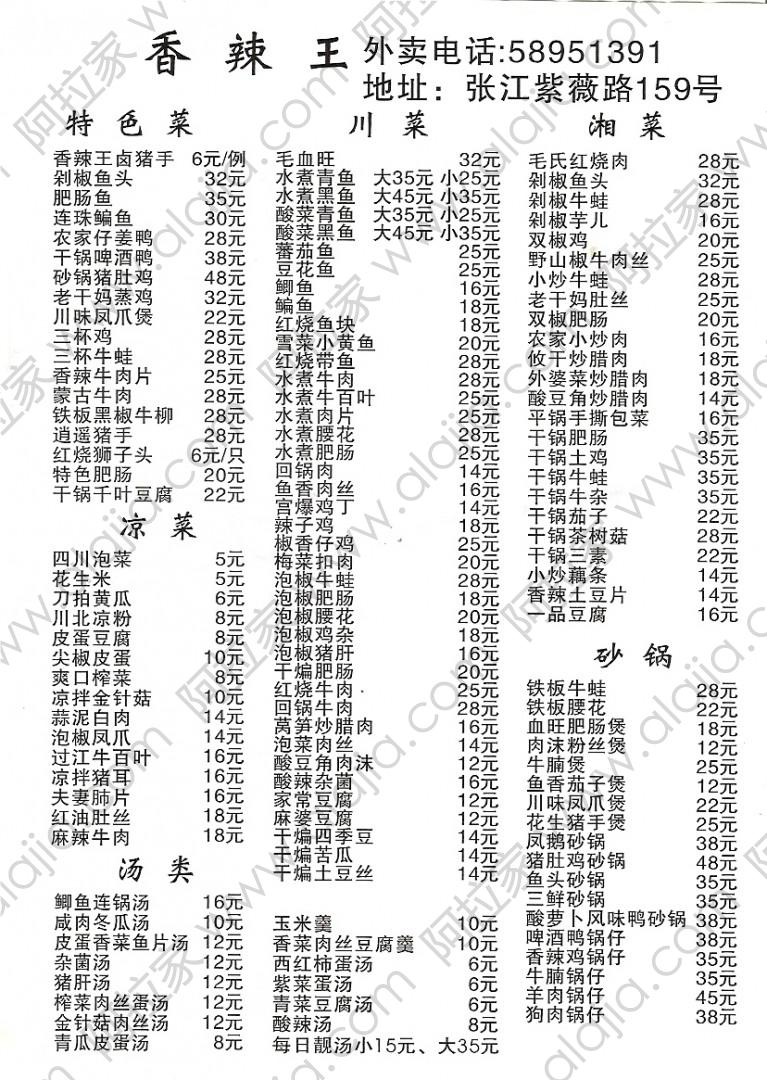 香辣王
外卖电话:58951391
地址：张江紫薇路159号
特色菜
香辣王卤猪手 6元/例
剁椒鱼头 32元
肥肠鱼 35元
连珠鳊鱼 30元
农家仔姜鸭 28元
干锅啤酒鸭 38元
砂锅猪肚鸡 48元
老干妈蒸鸡 32元
川味凤爪煲 22元
三杯鸡 28元
三杯牛蛙 28元
香辣牛肉片 25元
蒙古牛肉 28元
铁板黑椒牛柳 28元
逍遥猪手 28元
红烧狮子头 6元/只
特色肥肠 20元
干锅千叶豆腐 22元
凉菜
四川泡菜 5元
花生米 5元
刀拍黄瓜 6元
川北凉粉 8元
皮蛋豆腐 8元
尖椒皮蛋 10元
爽口榨菜 8元
凉拌金针菇 10元
蒜泥白肉 14元
泡椒凤爪 14元
过江牛百叶 16元
凉拌猪耳 16元
夫妻肺片 16元
红油肚丝 18元
麻辣牛肉 18元
汤类
鲫鱼连锅汤 16元
咸肉冬瓜汤 10元
皮蛋香菜鱼片汤 12元
杂菌汤 12元
猪肝汤 12元
榨菜肉丝蛋汤 12元
金针菇肉丝汤 12元
青瓜皮蛋汤 8元
川菜
毛血旺 32元
水煮青鱼 大35元 小25元
水煮黑鱼 大45元 小35元
酸菜青鱼 大35元 小25元
酸菜黑鱼 大45元 小35元
蕃茄鱼 25元
豆花鱼 25元
鲫鱼 16元
鳊鱼 18元
红烧鱼块 18元
雪菜小黄鱼 20元
红烧带鱼 28元
水煮牛肉 28元
水煮牛百叶 25元
水煮肉片 25元
水煮腰花 28元
水煮肥肠 25元
回锅肉 14元
鱼香肉丝 16元
宫爆鸡丁 14元
辣子鸡 18元
椒香仔鸡 25元
梅菜扣肉 20元
泡椒牛蛙 28元
泡椒肥肠 18元
泡椒腰花 20元
泡椒鸡杂 18元
泡椒猪肝 16元
干煸肥肠 20元
红烧牛肉 25元
回锅牛肉 28元
莴笋炒腊肉 16元
泡菜肉丝 14元
酸豆角肉沫 12元
酸辣杂菌 16元
家常豆腐 12元
麻婆豆腐 12元
干煸四季豆 14元
干煸苦瓜 14元
干煸土豆丝 14元
玉米羹 10元
香菜肉丝豆腐羹 10元
西红柿蛋汤 6元
紫菜蛋汤 6元
青菜豆腐汤 6元
酸辣汤 8元
每日靓汤小15元、大35元
湘菜
毛氏红烧肉 28元
剁椒鱼头 32元
剁椒牛蛙 28元
剁椒芋儿 16元
双椒鸡 20元
野山椒牛肉丝 25元
小炒牛蛙 28元
老干妈肚丝 25元
双椒肥肠 20元
农家小炒肉 16元
攸干炒腊肉 18元
外婆菜炒腊肉 18元
酸豆角炒腊肉 14元
平锅手撕包菜 16元
干锅肥肠 35元
干锅土鸡 35元
干锅牛蛙 35元
干锅牛杂 35元
干锅茄子 22元
干锅茶树菇 28元
干锅三素 22元
小炒藕条 14元
香辣土豆片 14元
一品豆腐 16元
砂锅
铁板牛蛙 28元
铁板腰花 22元
血旺肥肠煲 18元
肉沫粉丝煲 12元
牛腩煲 25元
鱼香茄子煲 12元
川味凤爪煲 22元
花生猪手煲 25元
凤鹅砂锅 38元
猪肚鸡砂锅 48元
鱼头砂锅 35元
三鲜砂锅 35元
酸萝卜风味鸭砂锅 38元
啤酒鸭锅仔 38元
香辣鸡锅仔 35元
牛腩锅仔 35元
羊肉锅仔 45元
狗肉锅仔 38元
阿拉家 www.alajia.com